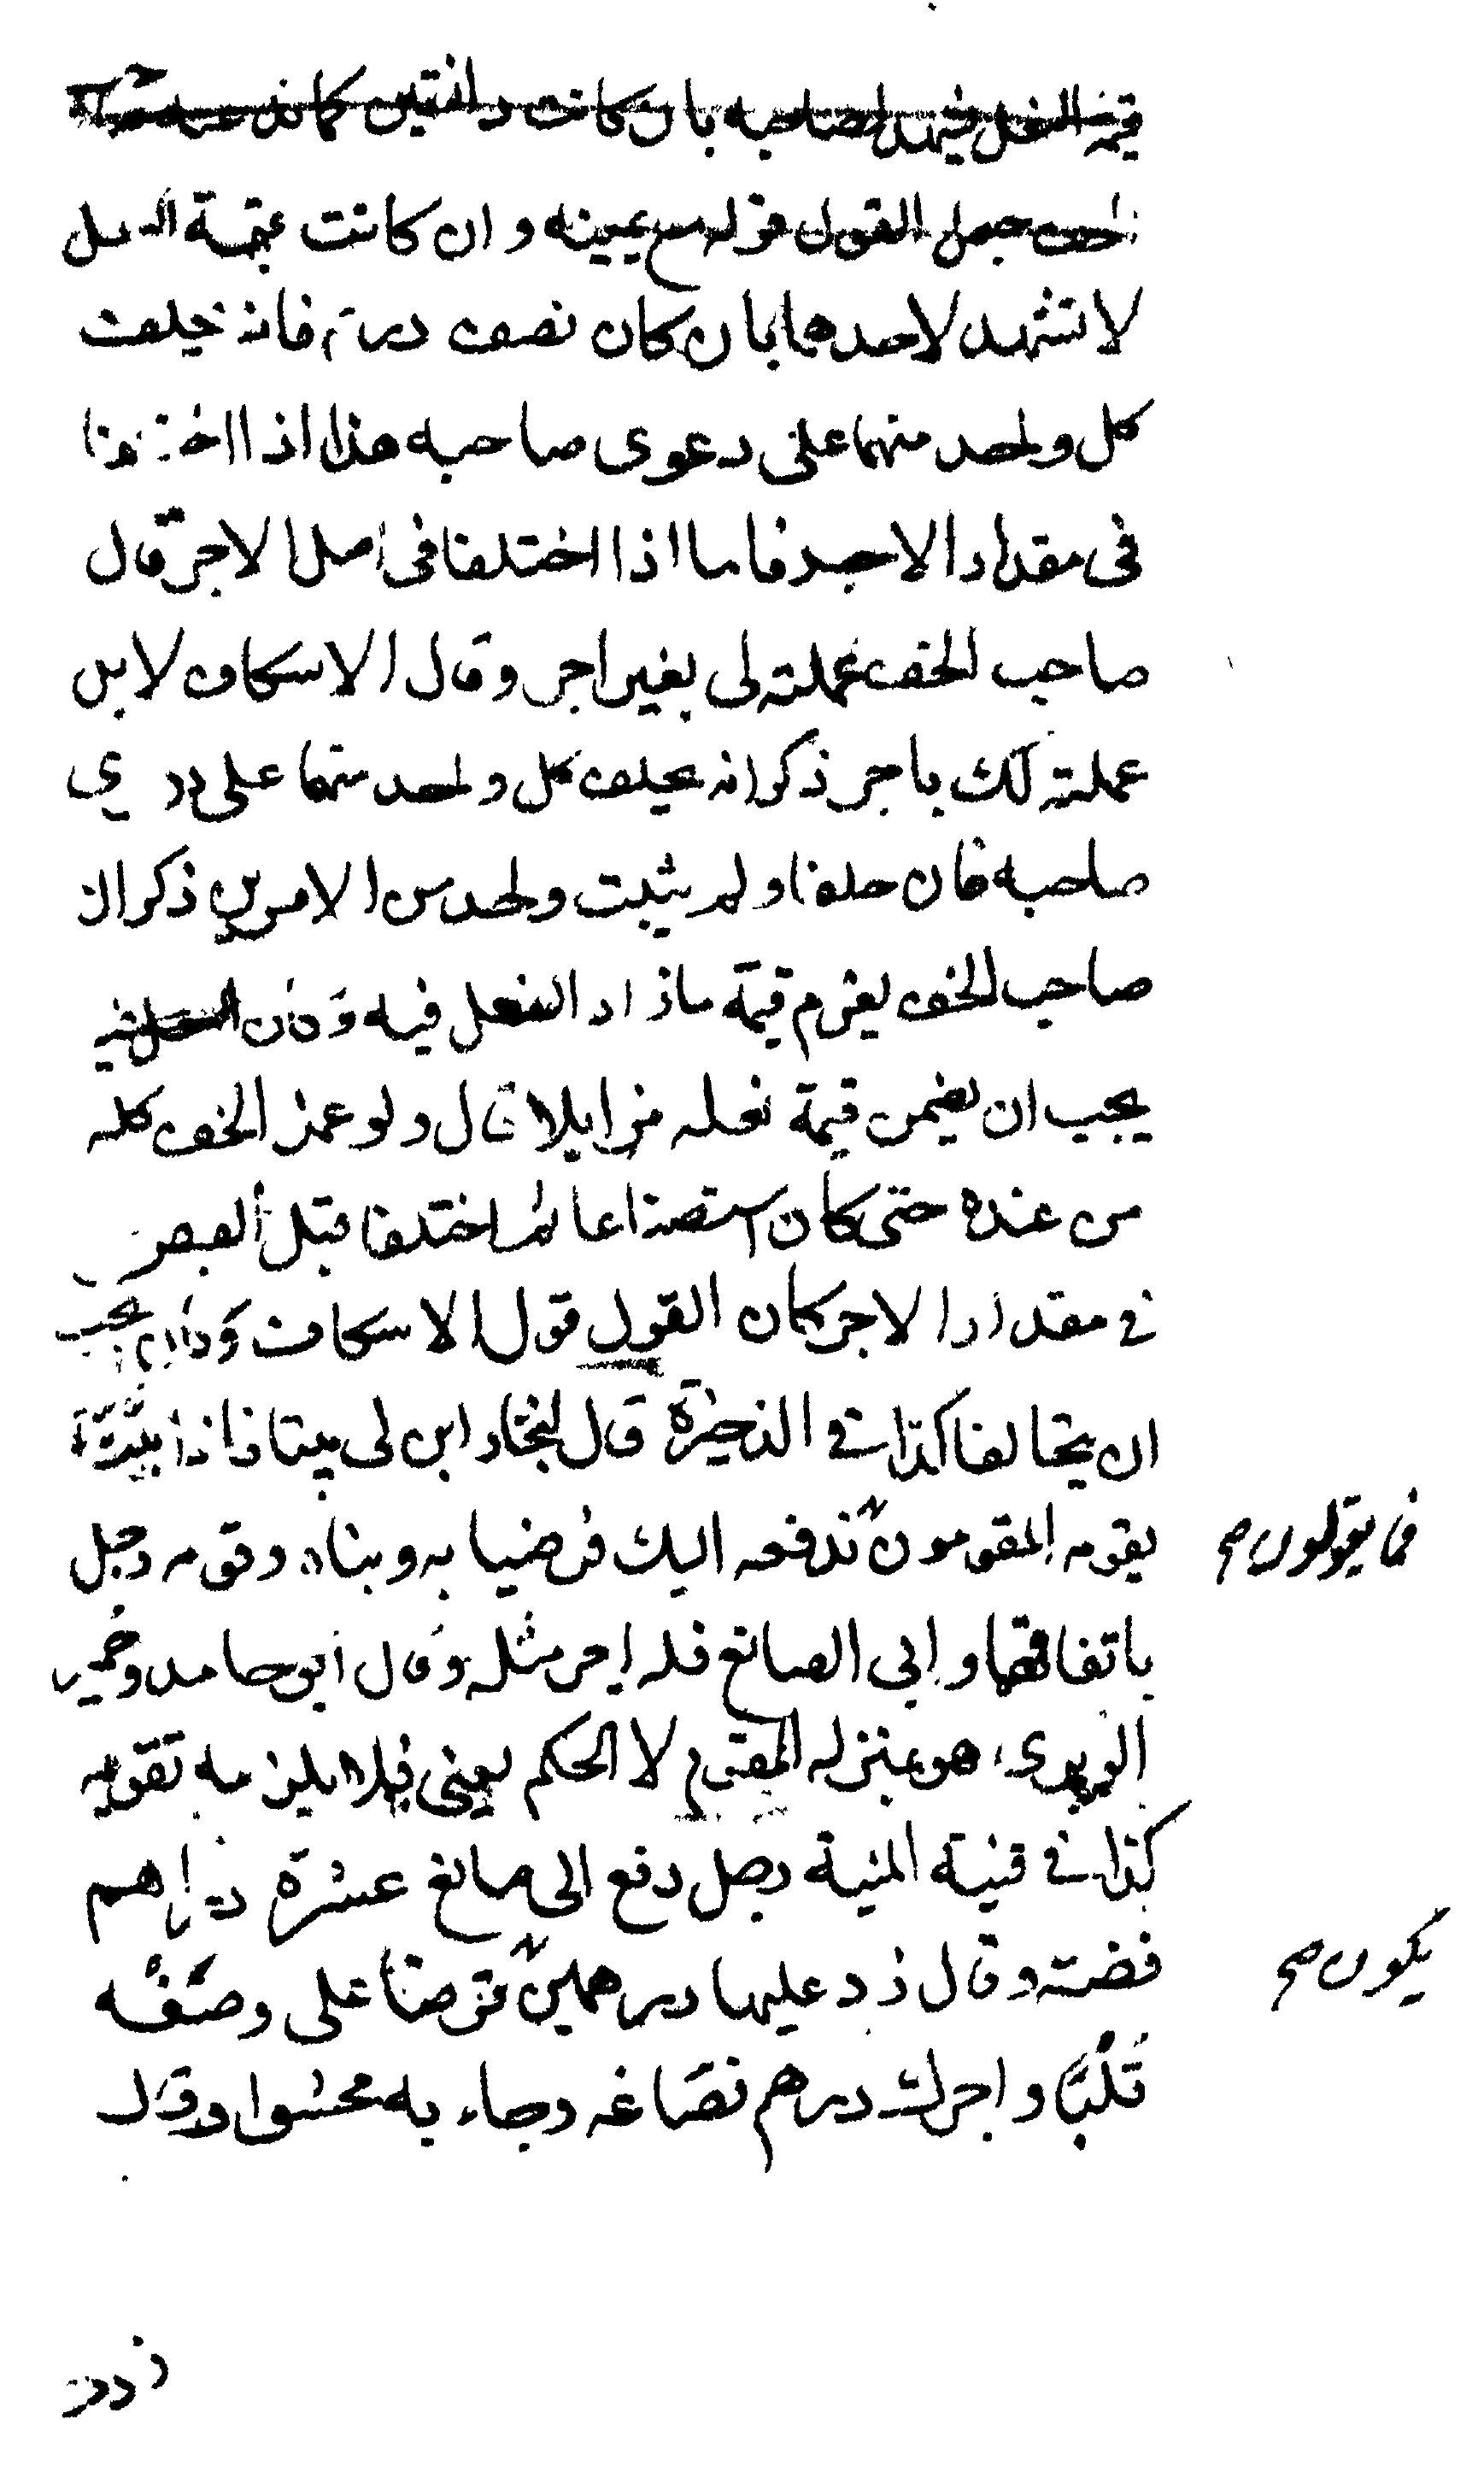 قيمة النعل يشهد لصاحبه بان كانت دانقين كانه
جعل القول قوله مع يمينه وان كانت قيمة النعل
لا تشهد لاحدهما بان كان نصف درهم فانه يحلف
كل واحد منهما على دعوى صاحبه هذا اذا اختلفا
في مقدار الاجر فاما اذا اختلفا في اصل الاجر قال
صاحب الخف عملته لي بغير اجر وقال الاسكاف لا بل
عملته لك باجر ذكر انه يحلف كل واحد منهما على دعوى
صاحبه فان حلفا ولم يثبت واحد من الامرين ذكر ان
صاحب الخف يغرم قيمة ما زاد النعل فيه وكان
يجب ان يضمن قيمة نعله مزايلا قال ولو عمل الخف كله
من عنده حتى كان استصناعا ثم اختلفا قبل القبض
في مقدار الاجر كان القول قول الاسكاف وكان يجب
ان يتحالفا كذا في الذخيرة قال لنجار ابن لي بيتا فاذا بنيته
يقومه المقومون ندفعه اليك فرضيا به وبناه وقومه رجل
فما يقولون صح
باتفاقهما وابى الصانع فله اجر مثله وقال ابو حامد وحمير
الوبرى هو بمنزلة المقوم لا الحكم يعني فلا يلزمه تقويمه
كذا في قنية المنية رجل دفع الى صائغ عشرة دراهم
فضة وقال زد عليها درهمين قرضا على وصغه
يكون صح
قلبا واجرك درهم فصاغه وجاء به محشوا وقال
زدت